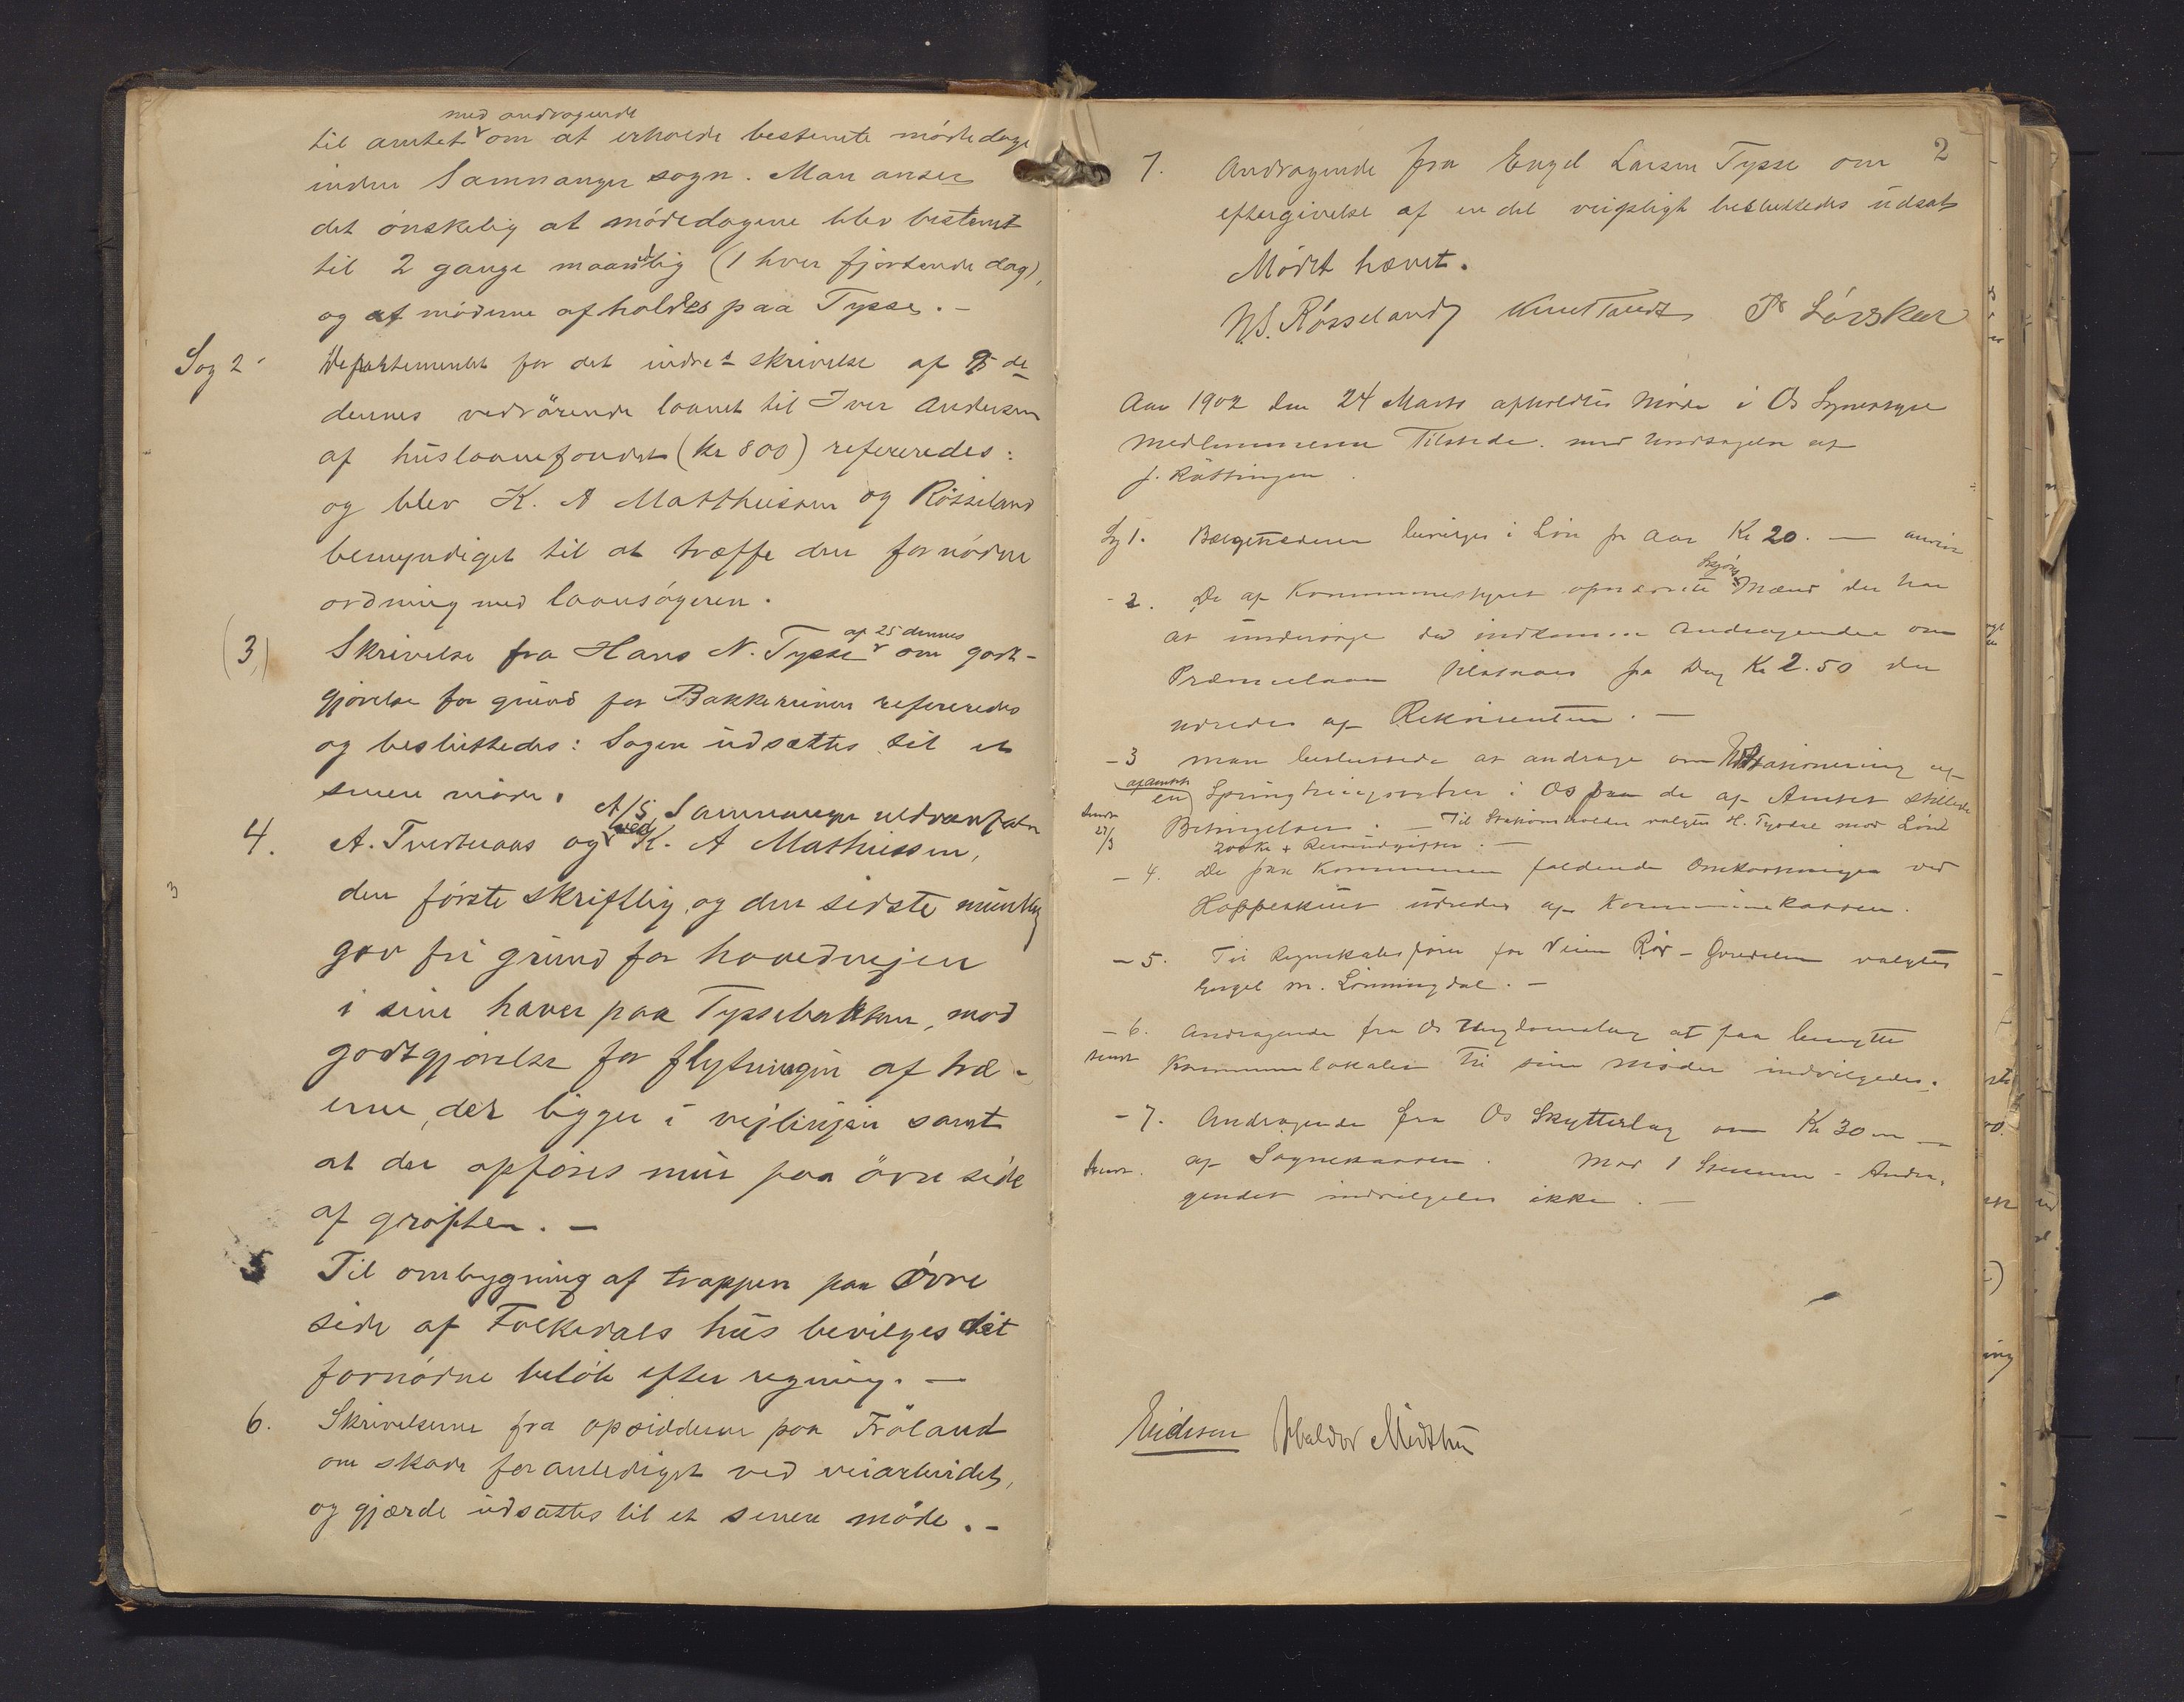 med andragende
til amtet om at erholde bestemte mödedage
inden Samnanger sogn. Man anser
det önskelig at mödedagene blev bestemt
til 2 gange maanedlig (1 hver fjortende dag),
og at möderne afholdes paa Tysse. -
Sag 2
Departementet for det indres skrivelse af de
dennes vedrörende laanet til Iver Andersen
af huslaanefondet (kr 800) refereredes:
og blev K. A Matthiesen og Rösseland
bemyndiget til at træffe den fornödne
ordning med laansögeren.
(3)
Skrivelse fra Hans N. Tysse af 25 dennes om godt-
gjörelse for grund for Bakkerunen refereredes
og besluttedes: Sagen udsættes til et
senere möde.
4.
A. Tverteraas og A/S Samnanger uldvarefabr
ved K. A Mathiessen,
den förste skriftlig og den sidste mundtlig
gav fri grund for hovedvejen
i sine haver paa Tyssebakken, mod
godtgjörelse for flytningen af træ-
erne, der ligger i vejlinjen samt
at der opföres mur paa övre side
af gröften. -
5
Til ombygning af trappen paa övre
side af Folkedals hus bevilges det
fornödne belöb efter regning. -
6.
Skrivelserne fra opsidderne paa Fröland
om skade foranlediget ved veiarbeidet,
og gjærde udsættes til et senere möde. -
3
2
7.
Andragende fra Engel Larsen Tysse om
eftergivelse af en del veipligt besluttedes udsat
Mödet hævet.
N.S. Rösseland Knut Tveidt P Lövskar
Aar 1902 den 24 Marts afholdtes Möde i Os Sognestyre
Medlemmerne Tilstede. med Undtagelse af
J. Röttingen.
Sg 1. Bælgetræderen bevilges i Lön pr Aar Kr 20. —
- 2. De af Kommunestyret opnævnte Skjöns Mænd der har
at undersöge de indkomne Andragender om
Præmielaan tilstaaes pr Dag Kr 2.50 der
udredes af Rekvirenten. —
- 3 Man besluttede at andrage om Stationering af
en af amtets Springhingster i Os paa de af Amtet stillede
Sendt 27/3
Betingelser. — Til Stationsholder valgtes H. Tysdal mod Lönd
200 Kr +
- 4. De paa Kommunen faldende Omkostninger ved
Hoppeskuet udredes af Kommunekassen.
- 5. Til Regnskabsförer for Veien Rör - Gverdalen valgtes
Engel M. Lönningdal. —
- 6. Andragende fra Os Ungdomslag at faa benytte
Sendt
Kommunelokalet til sine Möder indvilgedes.
- 7. Andragende fra Os Skytterlag om Kr 30
Sendt.
af Sognekassen. Mod 1 Stemme - Andra-
gendet indvilgedes ikke. —
Eidesen Haldor Midthu